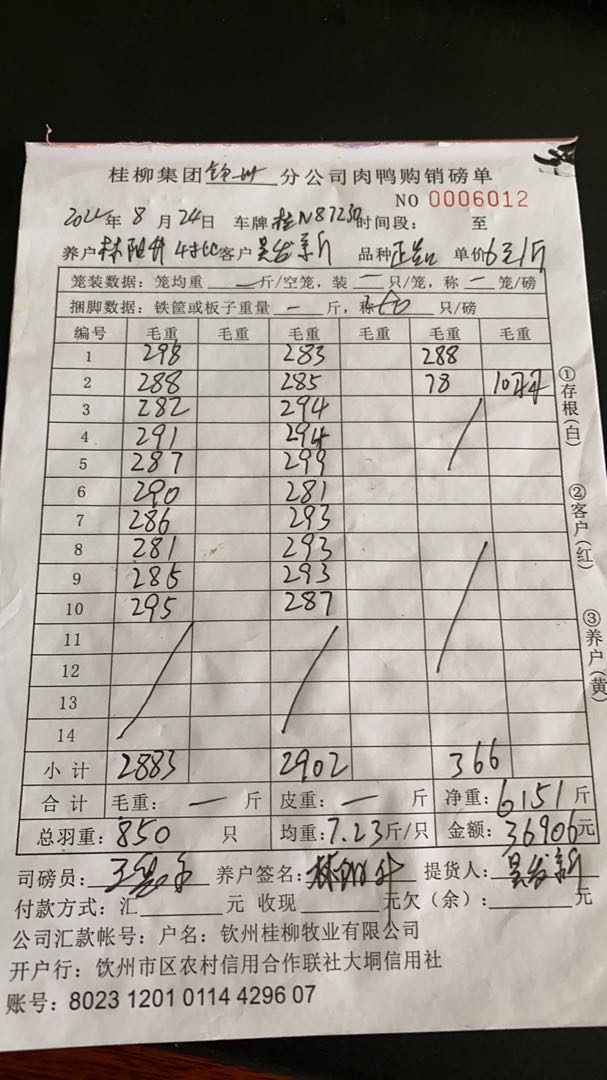 桂柳集团钦州分公司肉鸭购销磅单
NO 0006012
年8月24日 车牌桂N87230时间段: 至
养户林阳升 客户吴发新 品种 单价6元/斤
笼装数据: 笼均重 一 斤/空笼, 装 一 只/笼, 称 一 笼/磅
捆脚数据: 铁筐或板子重量 一 斤, 称 只/磅
编号 毛重 毛重 毛重 毛重 毛重 毛重
1 298 283 288
2 288 285 78
3 282 294
4 291 294
5 287 299
6 290 281
7 286 293
8 281 293
9 285 293
10 295 287
11
12
13
14
小计 2883 2902 366
合计 毛重: 一 斤 皮重: 一 斤 净重: 6151斤
总羽重: 850 只 均重: 7.23斤/只 金额: 36906元
司磅员: 养户签名: 林阳升 提货人: 吴发新
付款方式: 汇 元 收现 元欠(余): 元
公司汇款帐号: 户名: 钦州桂柳牧业有限公司
开户行: 饮州市区农村信用合作联社大垌信用社
账号: 8023 1201 0114 4296 07
①存根(白)
②客户(红)
③养户(黄)